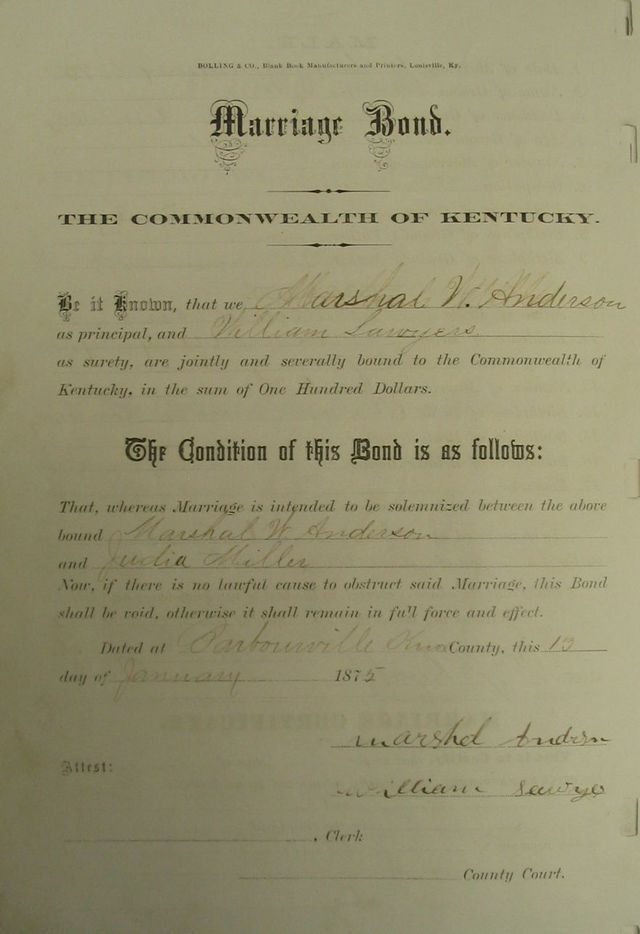 BOLLING & CO., Blank Book Manufacturers and Printers, Louisville, Ky.
Marriage Bond.
THE COMMONWEALTH OF KENTUCKY.
Be it Known, that we, Marshal W. Anderson
as principal, and William Sawyers
as surety, are jointly and severally bound to the Commonwealth of
Kentucky, in the sum of One Hundred Dollars.
The Condition of this Bond is as follows:
That, whereas Marriage is intended to be solemnized between the above
bound Marshal W. Anderson
and Judia Miller
Now, if there is no lawful cause to obstruct said Marriage, this Bond
shall be void, otherwise it shall remain in full force and effect.
Dated at Barbourville Knox County, this 13
day of January 1875
Marshel Andersn
Attest:
William Sawye
, Clerk
County Court.